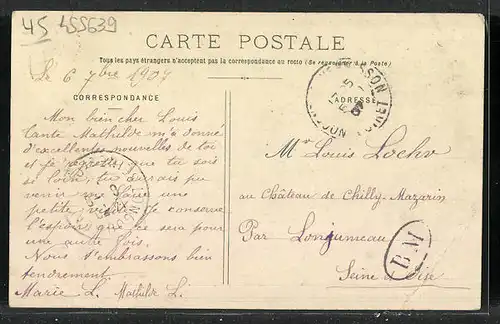 45 455639
CARTE POSTALE
Tous les pays étrangers n'acceptent pas la correspondance au recto (Se renseigner à la Poste)
Le 6 7bre 1907
CORRESPONDANCE
ADRESSE
Mon bien cher Louis
Tante Mathilde m'a donné
d'excellentes nouvelles de toi
et je regrette que tu sois
si loin, tu aurais pu
venir me faire une
petite visite. Je conserve
l'espoir que ce sera pour
une autre fois.
Nous t'embrassons bien
tendrement
Marie L. Mathilde L.
Mr Louis Lochv
au Château de Chilly-Mazarin
Par Longjumeau
Seine et Oise
BM